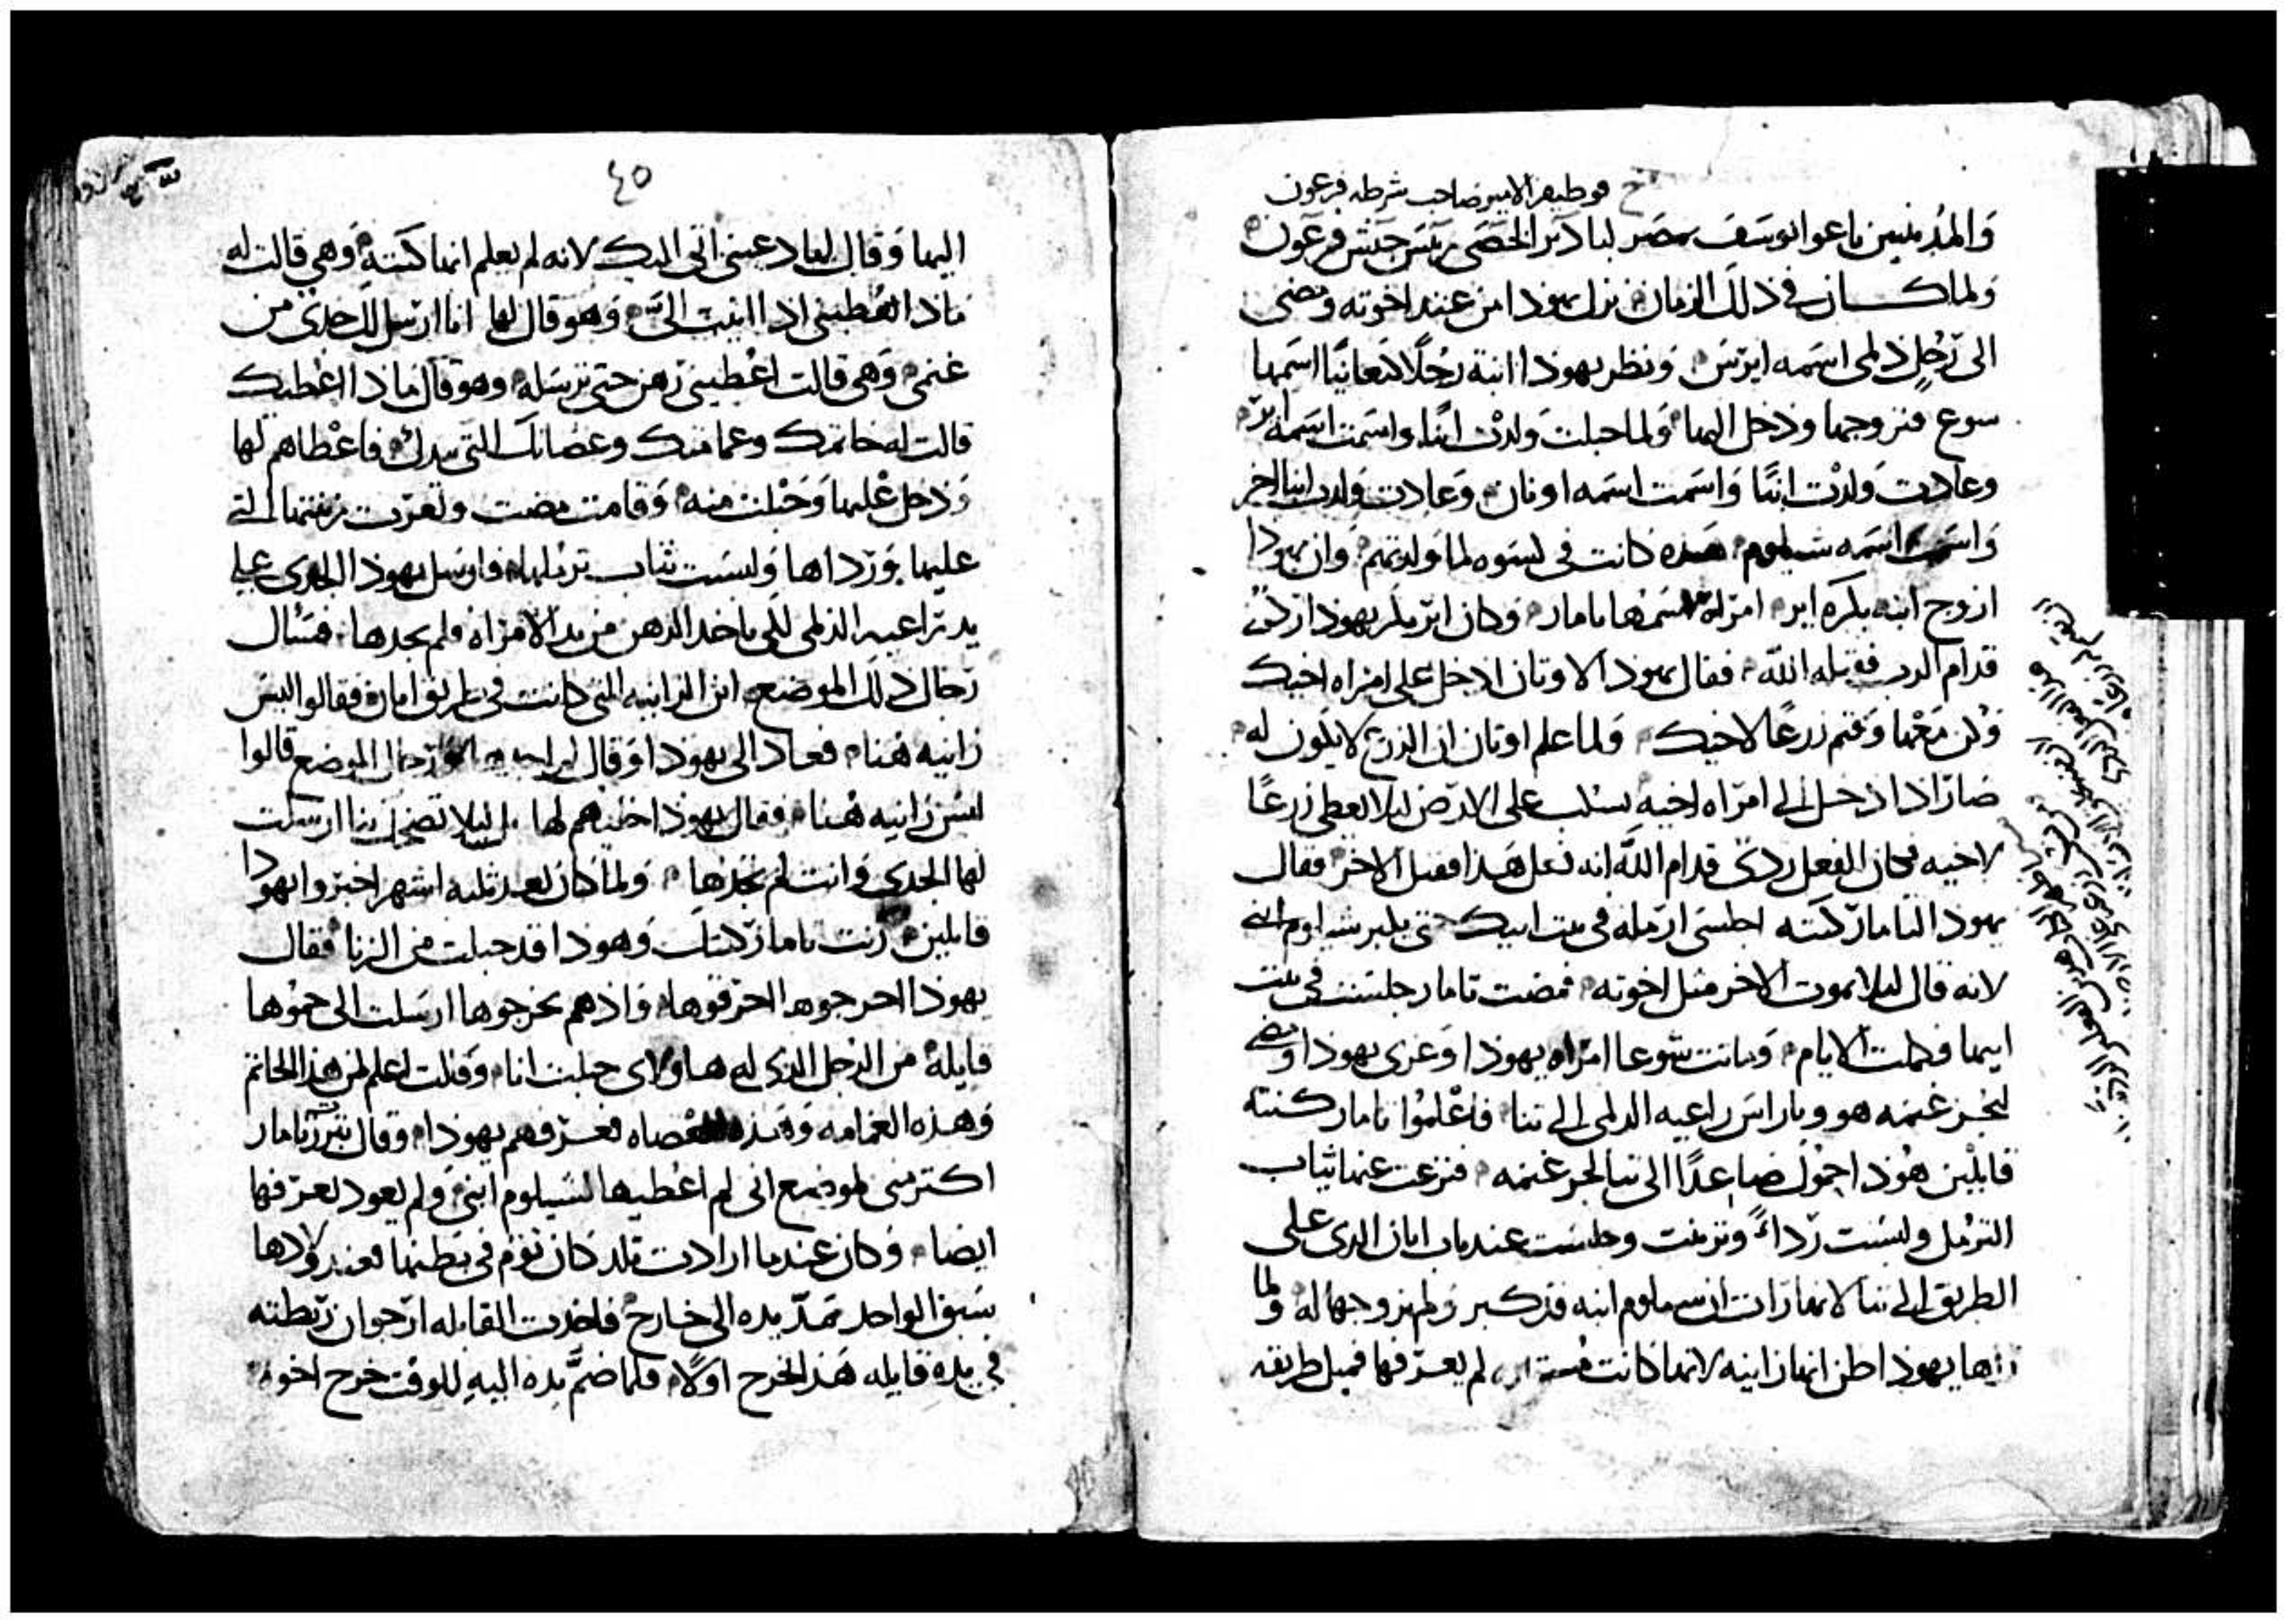 فوطيفر الامير صاحب شرطه فرعون
والمدينيين باعوا يوسف بمصر لبادير الخصى رييس جيش فرعون
ولما كان في ذلك الزمان نزل يهوذا من عند اخوته ومضى
الى رجل ذلمى اسمه ايرس ونظر يهوذا ابنة رجلا كنعانيا اسمها
سوع فتزوجها ودخل اليها ولما حبلت ولدت ابنا واسمت اسمه اير
وعادت ولدت ابنا واسمت اسمه اونان وعادت ولدت ابنا اخر
واسمت اسمه شيلوم هذه كانت في لسوه لما ولدتهم وان يهوذا
ازوج ابنه بكره اير امراه اسمها تامار وكان اير بكر يهوذا ازكن
قدام الرب فقتله الله فقال يهوذا لاونان ادخل على امراه اخيك
وكن معها وقم زرعا لاخيك ولما علم اونان ان الزرع لا يكون له
صار اذا دخل الى امراه اخيه يسكب على الارض ليلا يعطى زرعا
لاخيه فكان الفعل ردى قدام الله انه فعل هذا فقتل الاخر فقال
يهوذا لتامار كنته اجلسى ارمله في بيت ابيك حتى يكبر شيلوم ابنى
لانه قال ليلا يموت الاخر مثل اخوته فمضت تامار جلست في بيت
ابيها فكملت الايام وماتت شوعا امراه يهوذا وعزى يهوذا ومضى
ليجز غنمه هو وباراس راعيه الدلمى الى تمنا فاعلموا تامار كنته
قايلين هوذا حموك صاعدا الى تمنا ليجز غنمه فنزعت عنها ثياب
الترمل ولبست رداء وتزينت وجلست عند باب اينان الذى على
الطريق الى تمنا لانها رات ان سيلوم ابنه قد كبر ولم يزوجها له ولما
راها يهوذا ظن انها زانيه لانها كانت لم يعرفها فميل طريقه
٤٥
اليها وقال لها دعينى اتى اليك لانه لم يعلم انها كنته وهي قالت له
ماذا تعطينى اذا اتيت الى وهو قال لها انا ارسل لك جدى من
غنمى وهى قالت اعطينى رهن حتى ترسله وهو قال ماذا اعطيك
قالت له خاتمك وعمامتك وعصاتك التى بيدك فاعطاهم لها
ودخل عليها وحبلت منه وقامت مضت وتعرت زينتها التى
عليها ورداها ولبست ثياب ترملها فارسل يهوذا الجدى على
يد راعيه الذلمى لكى ياخذ الرهن من يد الامراه فلم يجدها فسال
رجال ذلك الموضع اين الزانيه التى كانت في طريق امان فقالوا ليس
زانيه هنا فعاد الى يهوذا وقال لم اجدها ورجال الموضع قالوا
ليس زانيه هنا فقال يهوذا اخليهم لها ليلا تضحك بنا ارسلت
لها الجدى وانت لم تجدها ولما كان بعد ثلثه اشهر اخبروا يهوذا
قايلين زنت تامار كنتك وهوذا قد حبلت من الزنا فقال
يهوذا اخرجوها احرقوها واذ هم يخرجوها ارسلت الى حموها
قايلة من الرجل الذى له هاولاى حبلت انا وقالت اعلم لمن هذا الخاتم
وهذه العمامه وهذه العصاه فعرفهم يهوذا وقال تبررت تامار
اكتر منى لموضع انى لم اعطيها لشيلوم ابنى ولم يعود يعرفها
ايضا وكان عندما ارادت تلد كان توم في بطنها فعند ولادها
سبق الواحد تمد يده الى خارج فاخذت القابله ارجوان ربطته
في يده قايله هذا خرج اولا فلما ضم يده اليه للوقت خرج اخوه